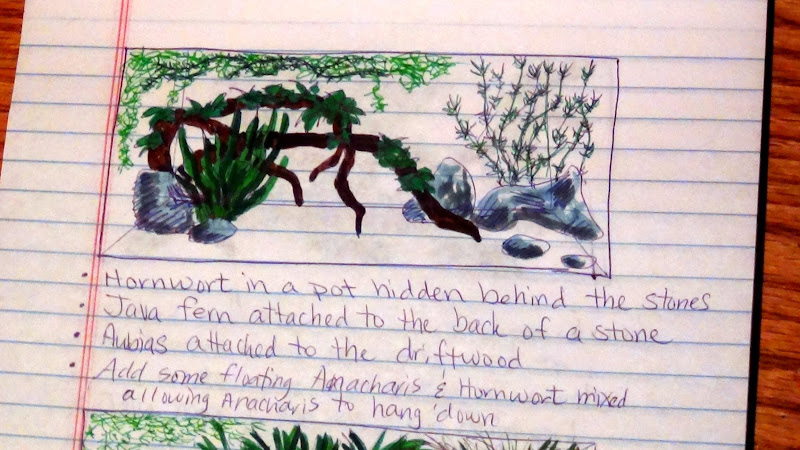 • Hornwort in a pot hidden behind the stones
• Java fern attached to the back of a stone
• Aubias attached to the driftwood
• Add some floating Anacharis & Hornwort mixed
allowing Anacharis to hang down